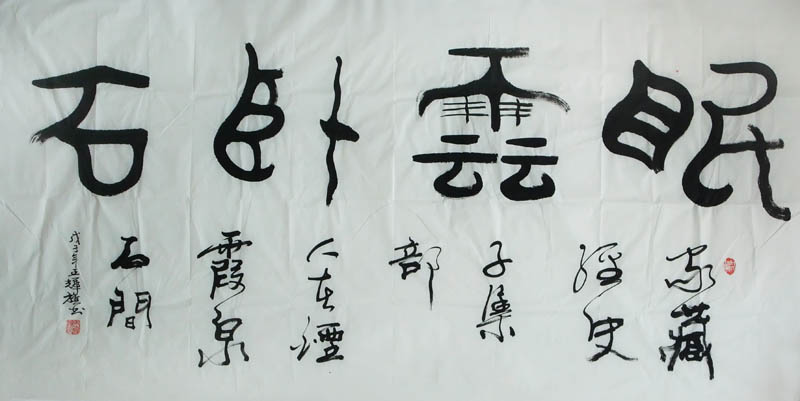 眠雲卧石
家藏
經史
子集
部
人在煙
霞泉
石間
戊子年